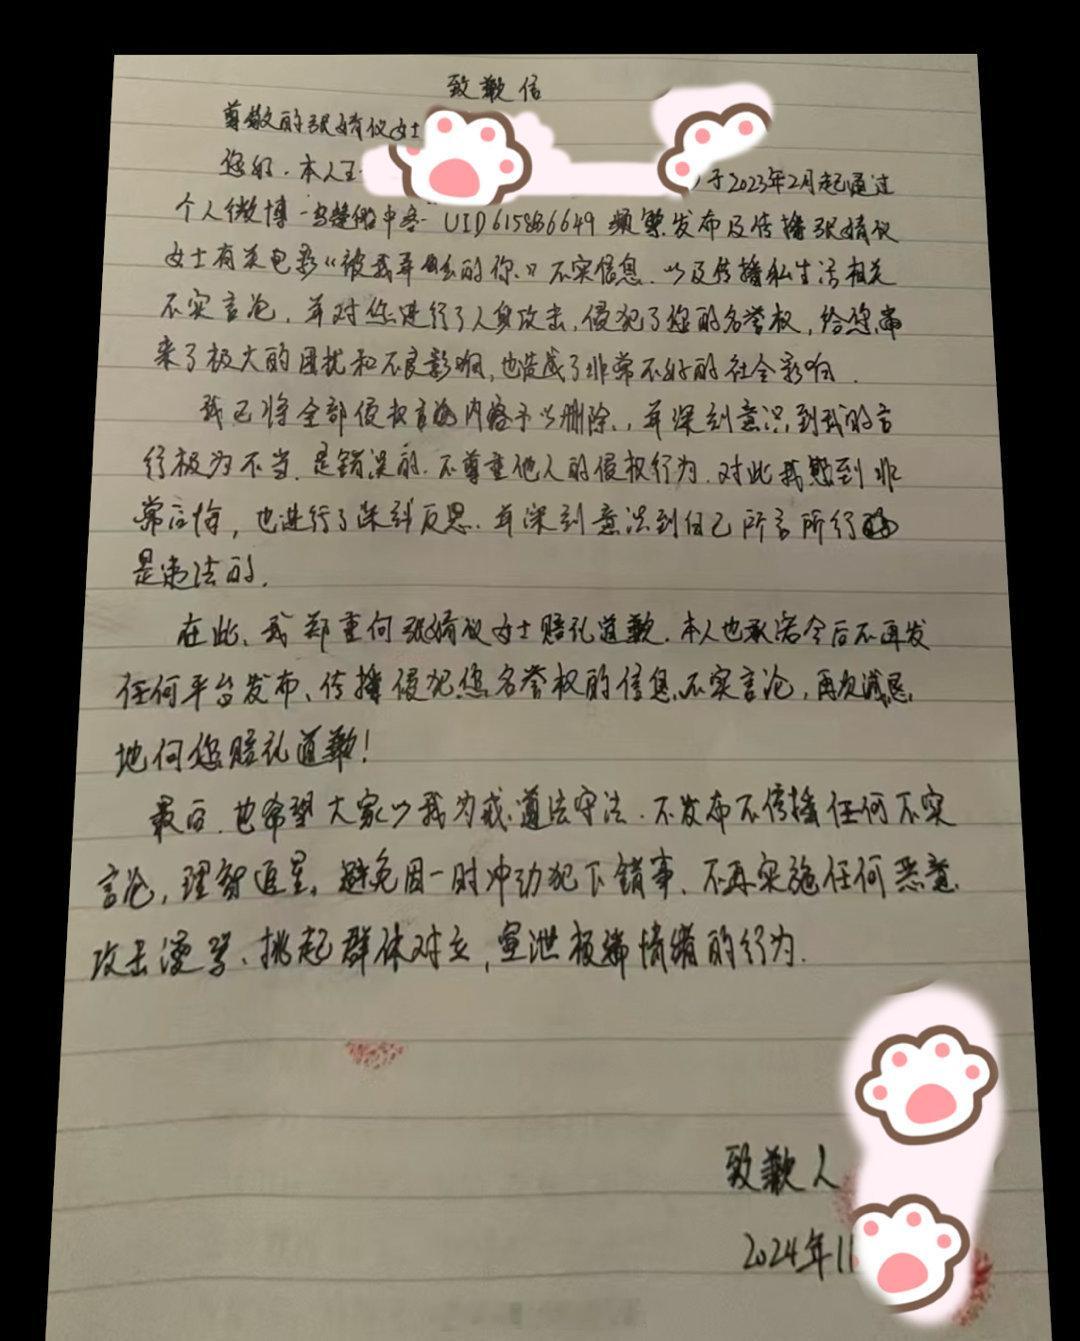 致歉信
尊敬的张婧仪女士
您好,本人王
于2023年2月起通过
个人微博 UID6158 6649 频繁发布及传播张婧仪
女士有关电影《被我弄 的你》不实信息,以及传播私生活相关
不实言论,并对您进行了人身攻击,侵犯了您的名誉权,给您带
来了极大的困扰和不良影响,也造成了非常不好的社会影响.
我已将全部侵权 内容予以删除,并深刻意识到我的言
行极为不当,是错误的,不尊重他人的侵权行为,对此我 到非
常 悔,也进行了深刻反思,并深刻意识到自己所言所行
是违法的,
在此,我郑重向张婧仪女士赔礼道歉,本人也承诺今后不再发
任何平台发布、传播侵犯您名誉权的信息、不实言论,再次诚恳
地向您赔礼道歉!
最后,也希望大家以我为戒,遵法守法,不发布不传播任何不实
言论,理智追星,避免因一时冲动犯下错事,不再实施任何恶意
攻击谩骂、挑起群体对立,宣泄极端情绪的行为.
致歉人
2024年11